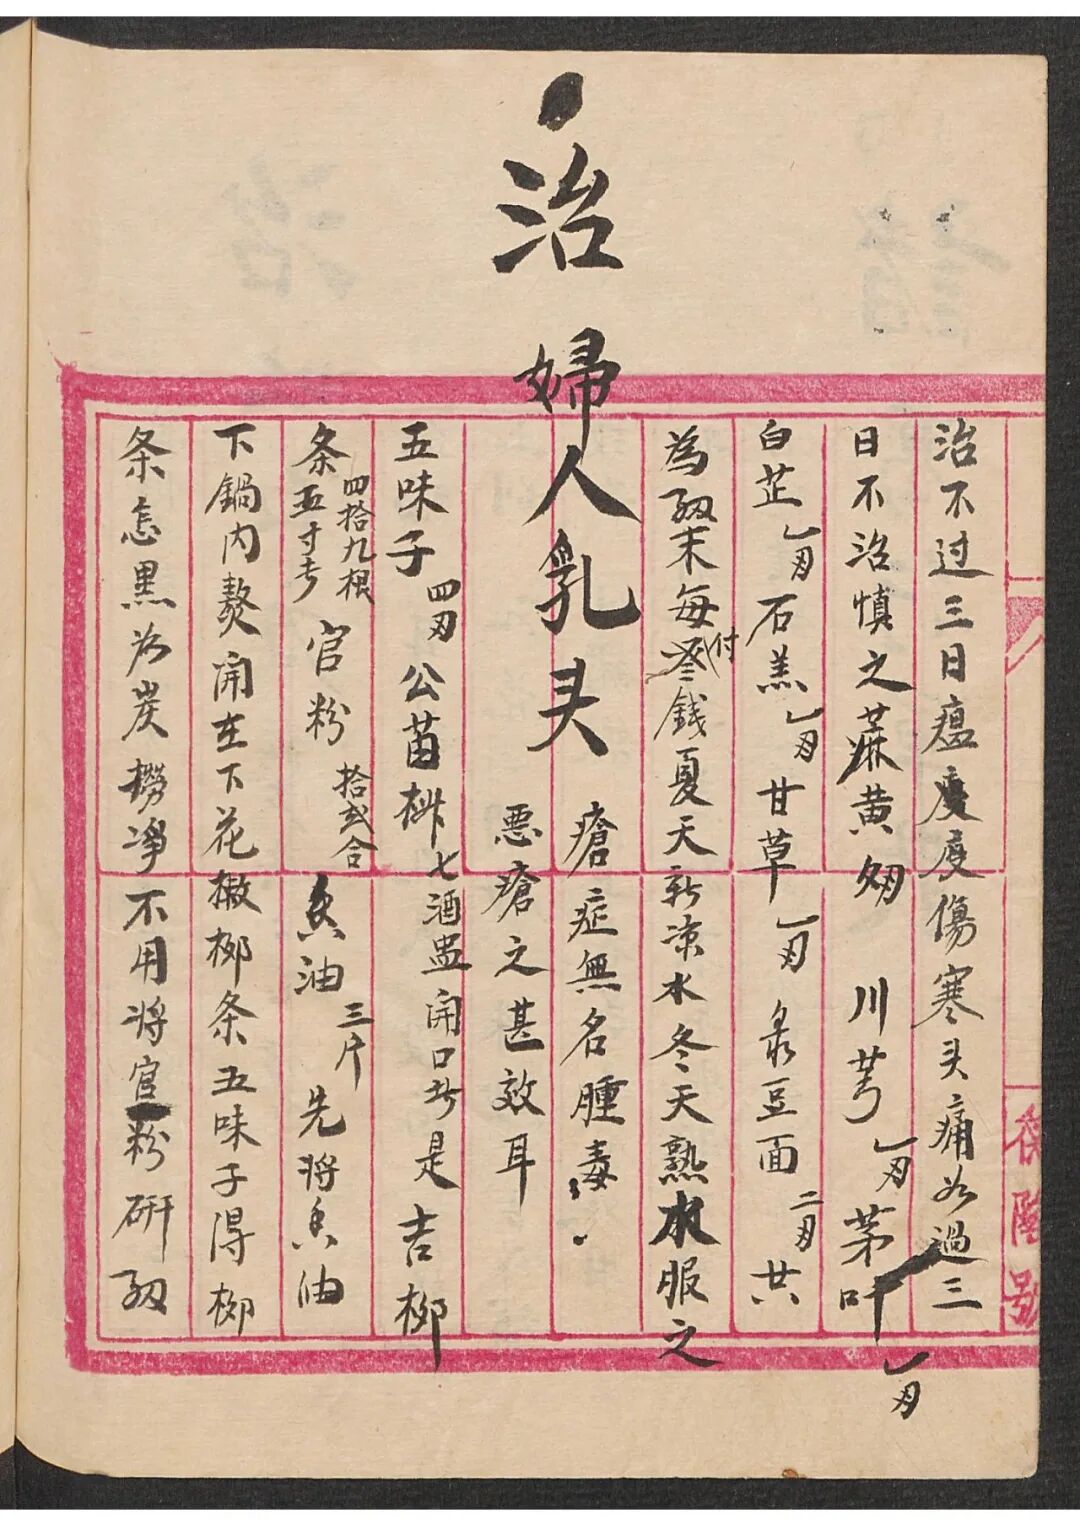 治不过三日瘟疫疫傷寒头痛如過三
日不治慎之蔴黄 川芎一刄茅叶一刄
白芷一刄石羔一刄甘草一刄 豆面二刄共
為 末每付 錢夏天新凉水冬天熟水服之
治婦人乳头
瘡症無名腫毒
悪瘡之甚效耳
五味子四刄公苗 七酒盅開口者是吉柳
条四拾九根五寸長官粉拾弍合 香油三斤 先將香油
下鍋内熬開在下花 柳条五味子得柳
条 黒为炭撈净不用将官粉研
復隆號